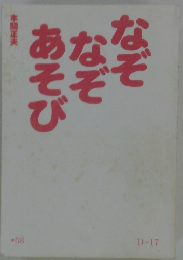 なぞ
なぞ
あそび
本間正夫
D-17